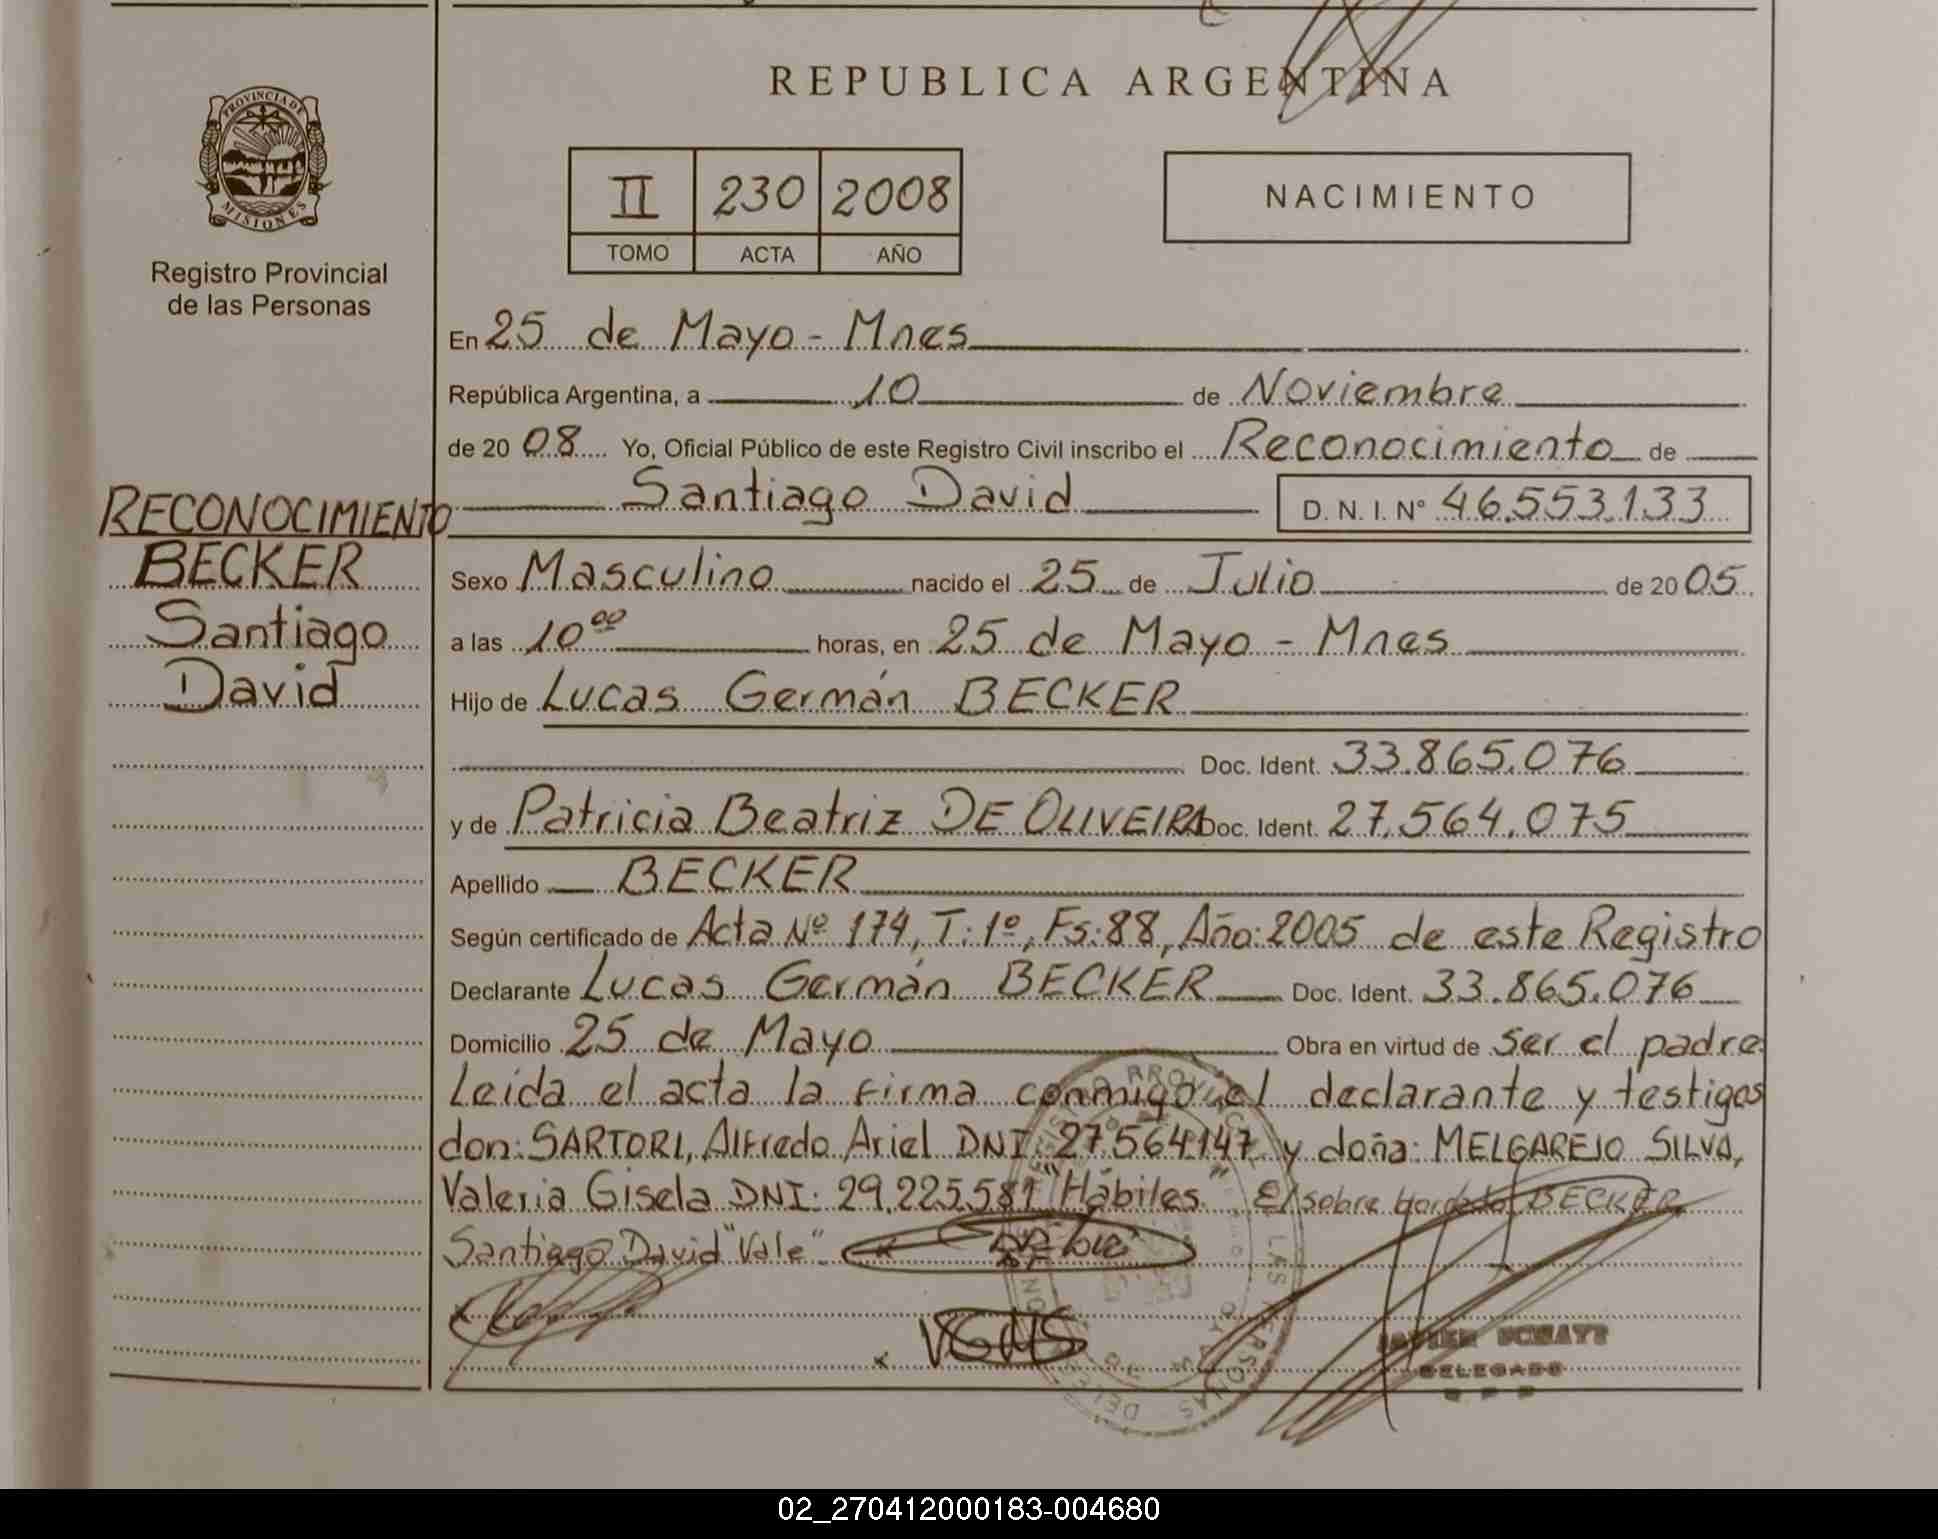 REPUBLICA ARGENTINA
PROVINCIA DE
MISIONES
Registro Provincial
de las Personas
II 230 2008
TOMO ACTA AÑO
NACIMIENTO
En 25 de Mayo - Mnes
República Argentina, a 10 de Noviembre
de 20 08 Yo, Oficial Público de este Registro Civil inscribo el Reconocimiento de
Santiago David D. N. I. Nº 46.553.133
RECONOCIMIENTO
BECKER
Santiago
David
Sexo Masculino nacido el 25 de Julio de 20 05
a las 10 00 horas, en 25 de Mayo - Mnes
Hijo de Lucas Germán BECKER
Doc. Ident. 33.865.076
y de Patricia Beatriz DE OLIVEIRA Doc. Ident. 27.564.075
Apellido BECKER
Según certificado de Acta Nº 174, T: 1º, Fs: 88, Año: 2005 de este Registro
Declarante Lucas Germán BECKER Doc. Ident. 33.865.076
Domicilio 25 de Mayo Obra en virtud de ser el padre
Leída el acta la firma conmigo el declarante y testigos
don: SARTORI, Alfredo Ariel DNI: 27.564.147 y doña: MELGAREJO SILVA,
Valeria Gisela DNI: 29.225.581 "Hábiles" E/ sobre bordado BECKER
Santiago David "Vale"
VGMS
DELEGADO
02_270412000183-004680